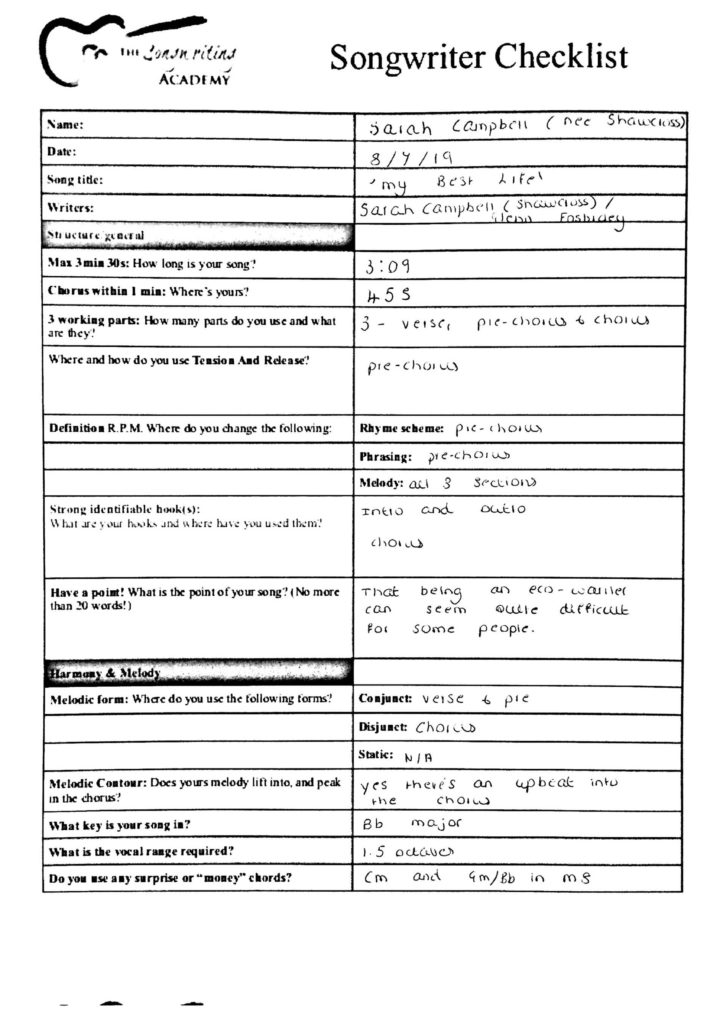 THE Songwriting
ACADEMY
Songwriter Checklist
Name: Sarah Campbell (nee Shawcross)
Date: 8/7/19
Song title: 'my Best Life'
Writers: Sarah Campbell (Shawcross) /
Glenn
Structure general
Max 3min 30s: How long is your song? 3:09
Chorus within 1 min: Where's yours? 45s
3 working parts: How many parts do you use and what 3 - verse, pre-chorus & chorus
are they?
Where and how do you use Tension And Release? pre-chorus
Definition R.P.M. Where do you change the following: Rhyme scheme: pre-chorus
Phrasing: pre-chorus
Melody: all 3 sections
Strong identifiable hook(s): Intro and outro
What are your hooks and where have you used them?
chorus
Have a point! What is the point of your song? (No more That being an eco-warrier
than 20 words!) can seem quite difficult
for some people.
Harmony & Melody
Melodic form: Where do you use the following forms? Conjunct: verse & pre
Disjunct: Chorus
Static: N/A
Melodic Contour: Does yours melody lift into, and peak yes there's an upbeat into
in the chorus? the chorus
What key is your song in? Bb major
What is the vocal range required? 1.5 octaves
Do you use any surprise or "money" chords? Cm and Gm/Bb in m8